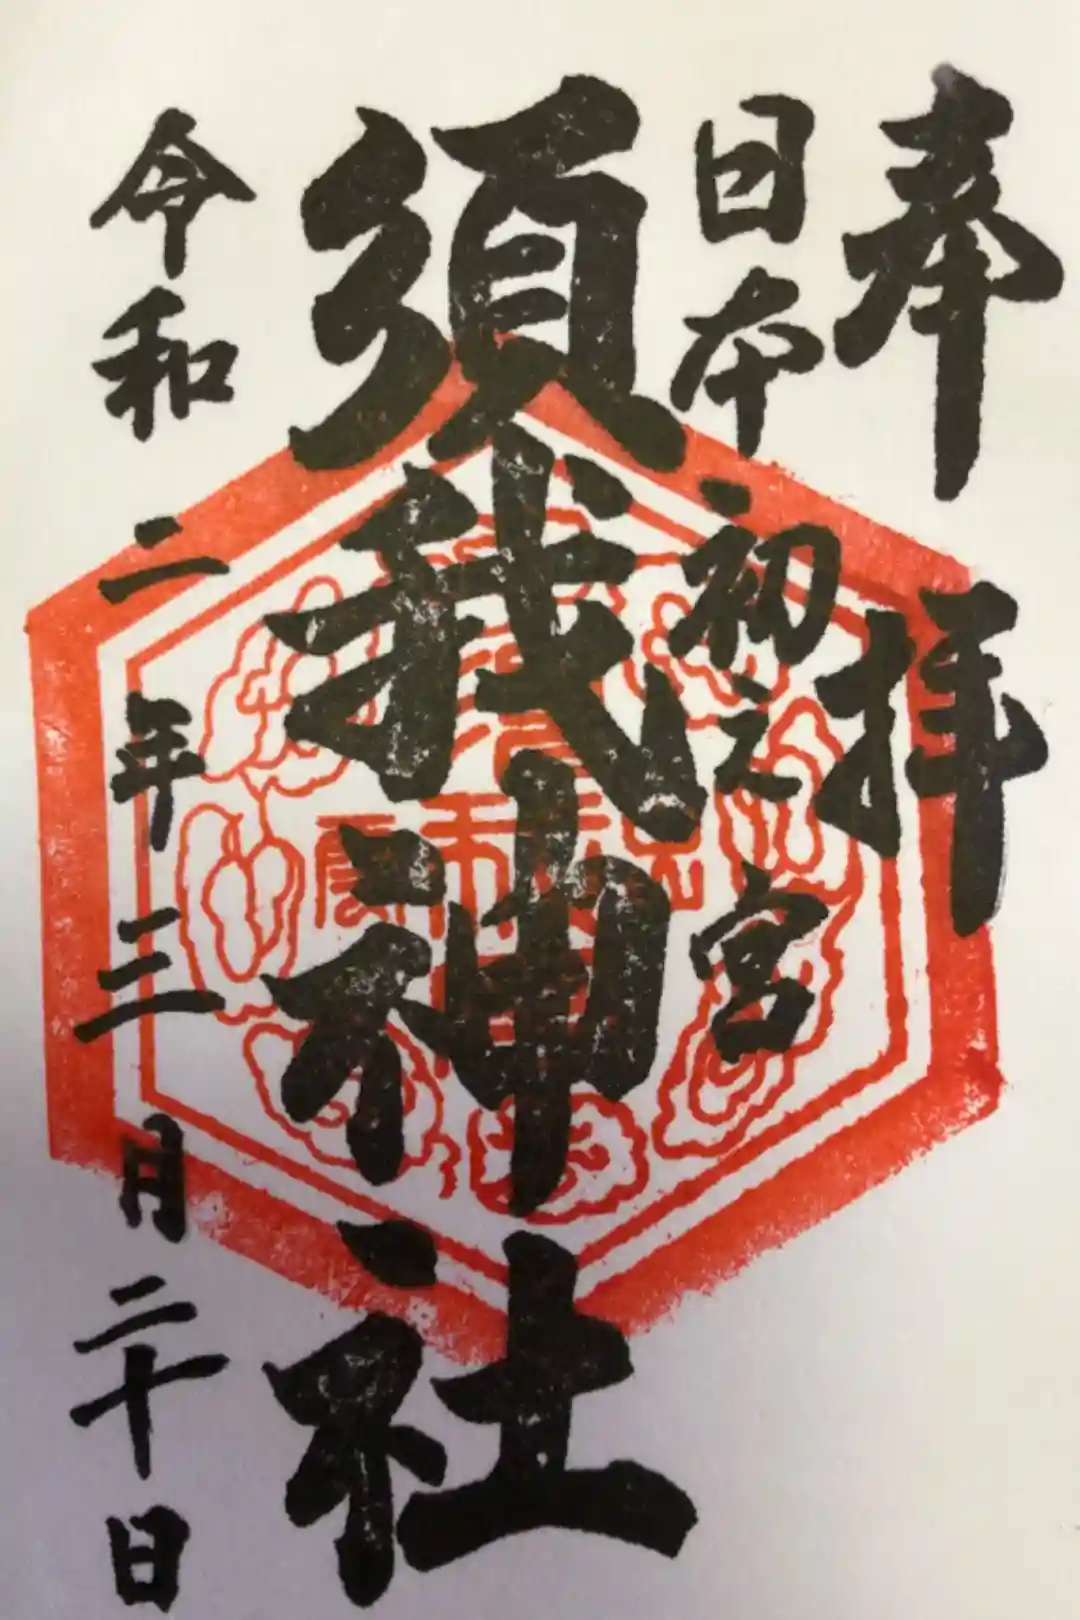 奉拝
日本初之宮
須我神社
令和二年三月二十日